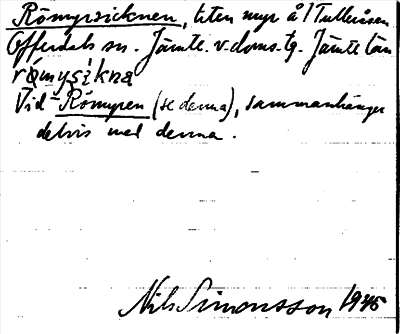 Römyrsicknen, liten myr å 1 Tulleråsen
Offerdals sn. Jämtl. v. doms. tg. Jämtl. län
römysikną
Vid Römyren (se denna), sammanhänger
delvis med denna.
Nils Simonsson 1945